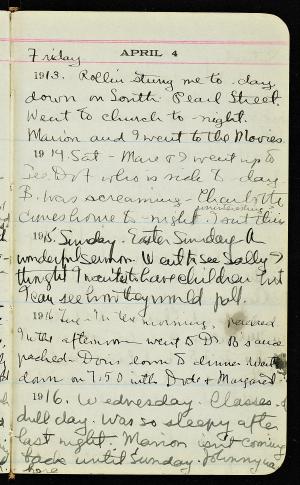 APRIL 4
Friday
1913. Rollin stung me to-day
down on South Pearl Street.
Went to church to-night.
Marion and I went to the Movies
1914 Sat - Marc & I went up to
see Dot who is sick to-day
B. was screaming - Charlotte
comes home to-night.
1915. Sunday. Easter Sunday. A
wonderful sermon. Went to see Sally &
thought I wanted to have children but
I can see how they would pall.
1916 Tue. In the morning,
In the afternoon went to Dr. B's and
packed. Doris down to dinner.
down on 7:50 with Dode & Margaret
1916. Wednesday. Classes. A
dull day. Was so sleepy after
last night. Marion isn't coming
back until Sunday. Johnny
here